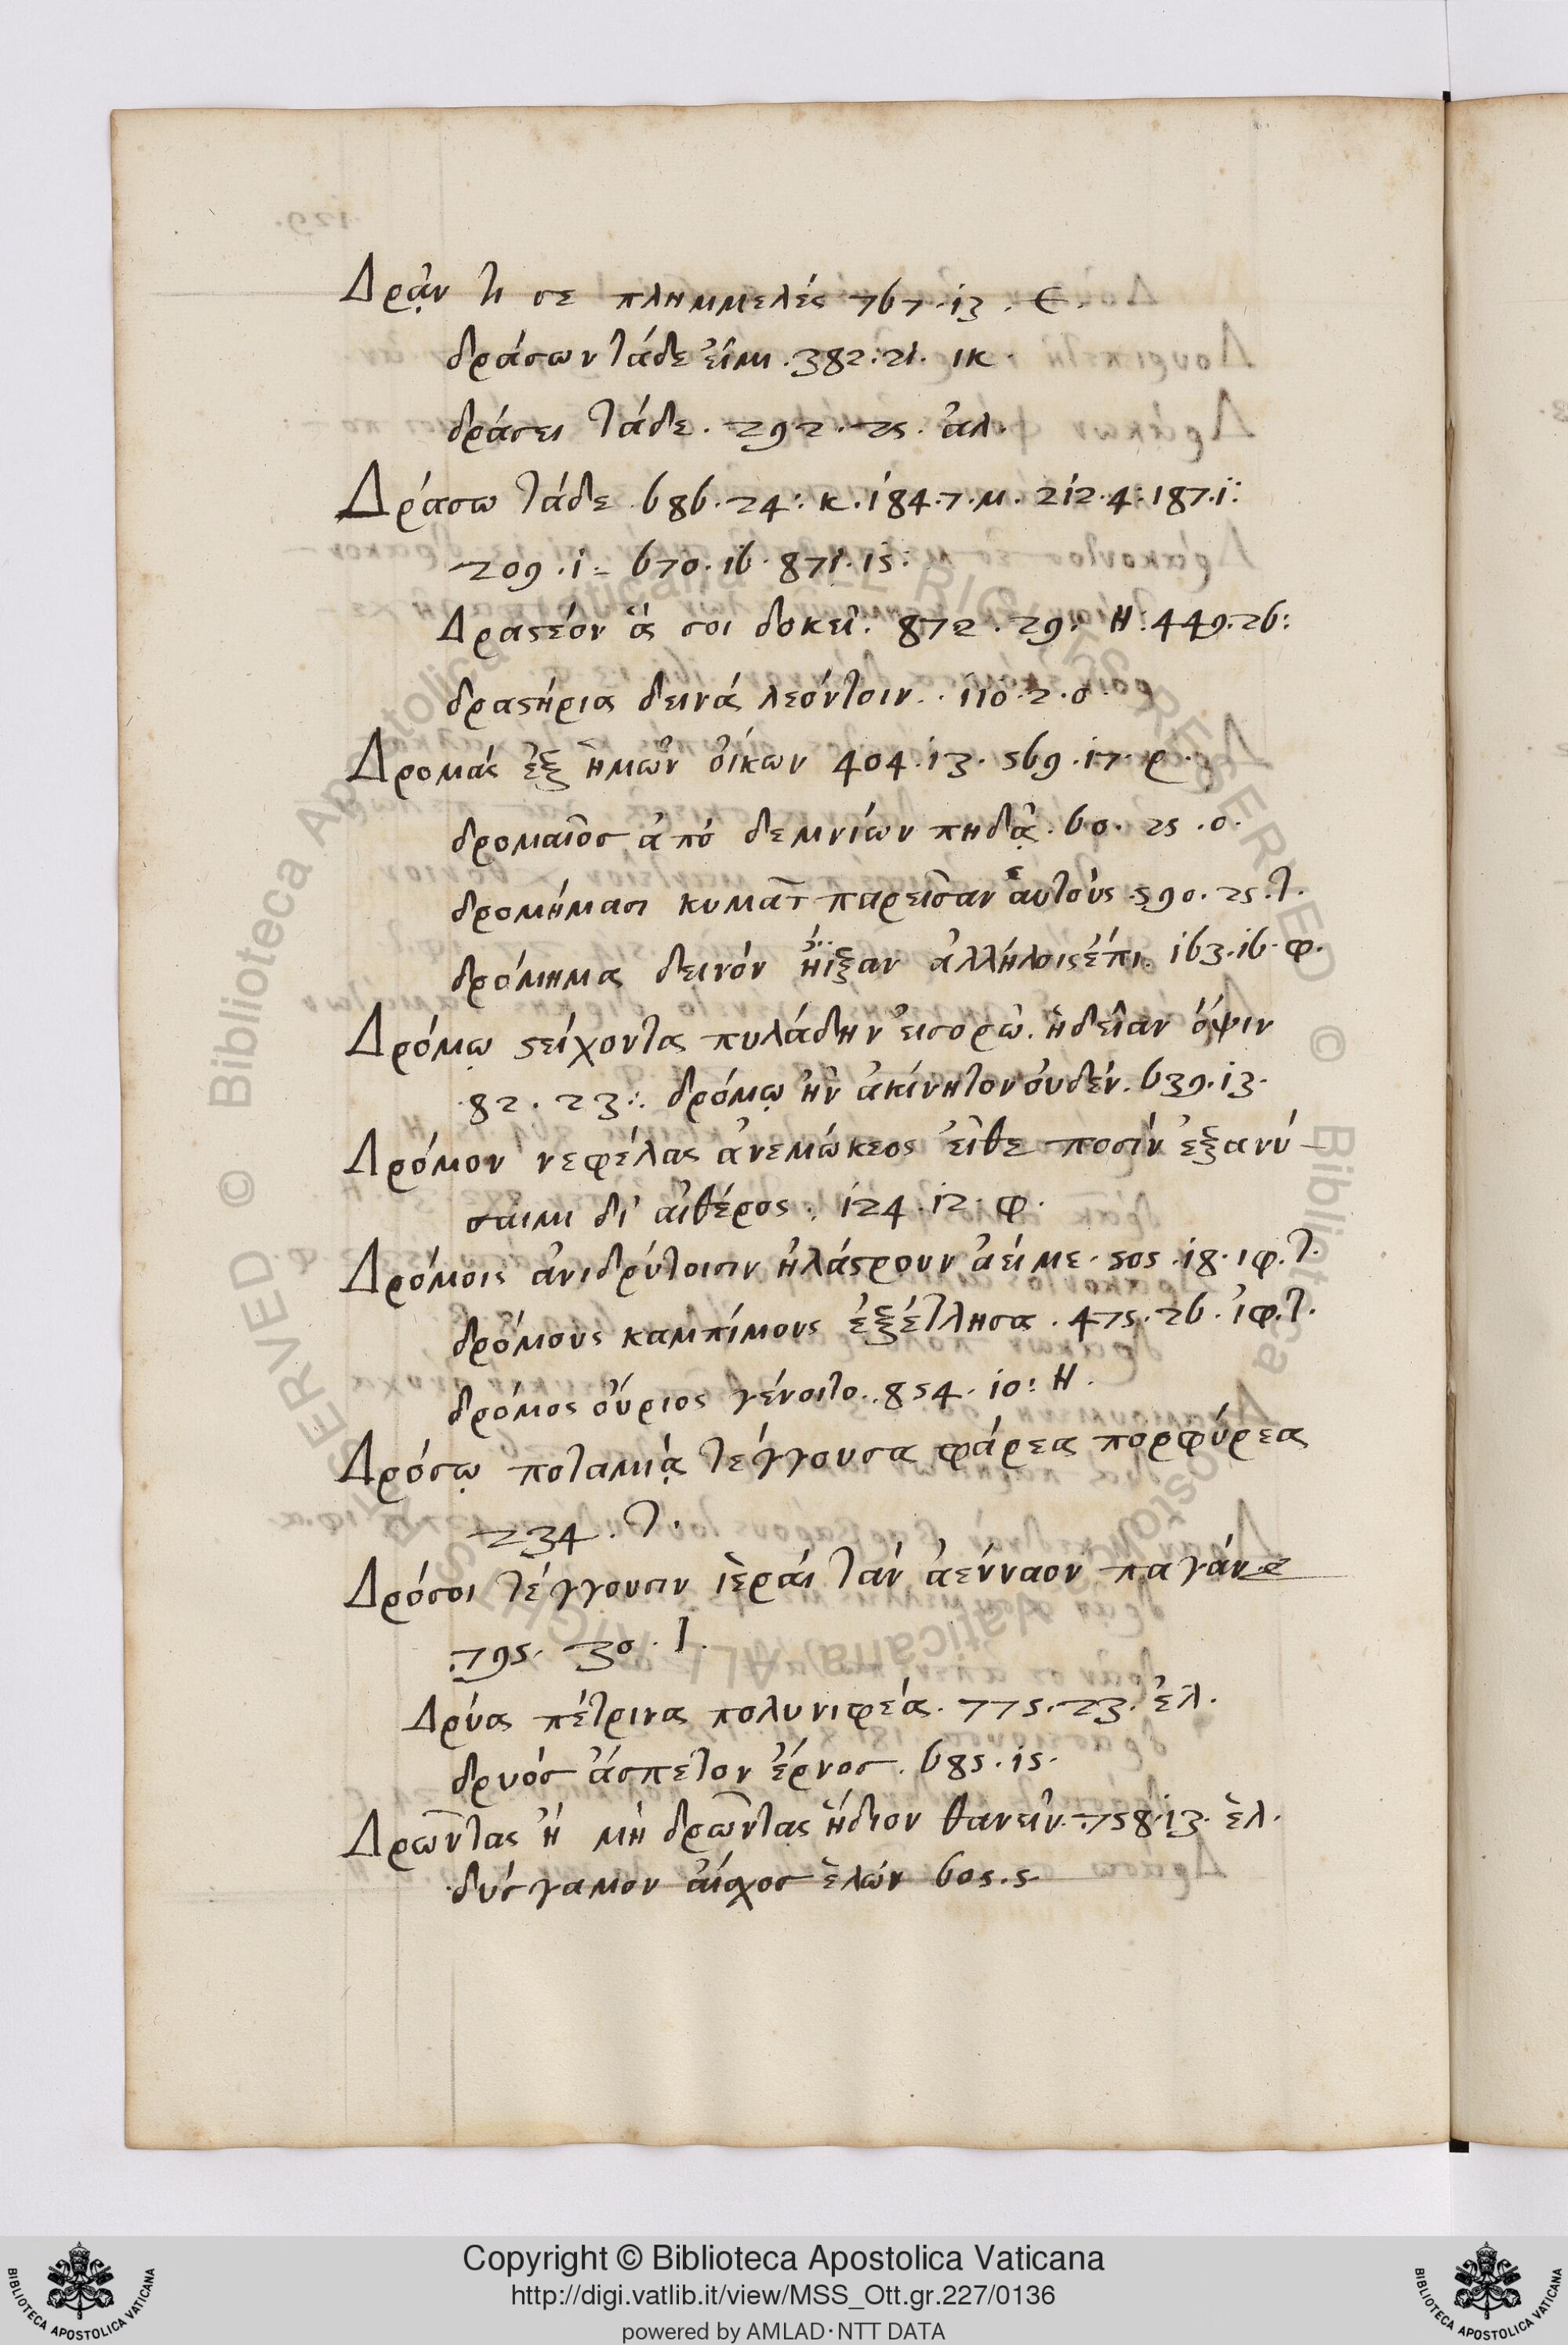 Δρᾷν τι σε πλημμελές 767.13. Є.
δράσων τάδε εἶμι. 382.21. ικ.
δράσει τάδε. 292.25. ἀλ.
Δράσω τάδε 686.24: κ. 184.7. μ. 212.4: 187.1:
209.1: 670.16. 871.15:
Δραστέον ἅ σοι δοκεῖ. 872.29: Η: 449.26:
δραστήρια δεινά λεόντοιν. 110.2. ο.
Δρομάς ἐξ ἡμῶν οἴκων 404.13. 569.17. ρ.
δρομαῖος ἀπό δεμνίων πηδᾷ. 60. 25. ο.
δρομήμασι κυματ παρεῖσαν ἑαυτούς. 590. 25. τ.
δρόμημα δεινόν ἤϊξαν ἀλλήλοις ἔπι. 163.16. φ.
Δρόμῳ στείχοντα πυλάδην εἰσορῶ. ἡδεῖαν ὄψιν
82. 23: δρόμῳ ἦν ἀκίνητον οὐδέν. 639.13.
Δρόμον νεφέλας ἀνεμώκεος εἴθε ποσίν ἐξανύ-
σαιμι δι' αἰθέρος. 124.12. φ.
Δρόμοις ἀνιδρύτοισιν ἠλάστρουν ἀεί με. 505.18. ιφ. τ.
δρόμους καμπίμους ἐξέτλησα. 475.26. ἰφ. τ.
δρόμος οὔριος γένοιτο. 854. 10: Η.
Δρόσῳ ποταμίᾳ τέγγουσα φάρεα πορφύρεα
234. τ.
Δρόσοι τέγγουσιν ἱεραί τάν ἀένναον παγάν
795. 30. Ι.
Δρύα πέτρινα πολυνιφέα. 775.23. ἑλ.
δρυός ἄσπετον ἔρνος. 685.15.
Δρῶντας ἤ μή δρῶντας ἥδιον θανεῖν. 758.13. ἑλ.
δύσγαμον αἶσχος ἑλών 605.5
Copyright © Biblioteca Apostolica Vaticana
http://digi.vatlib.it/view/MSS_Ott.gr.227/0136
powered by AMLAD·NTT DATA